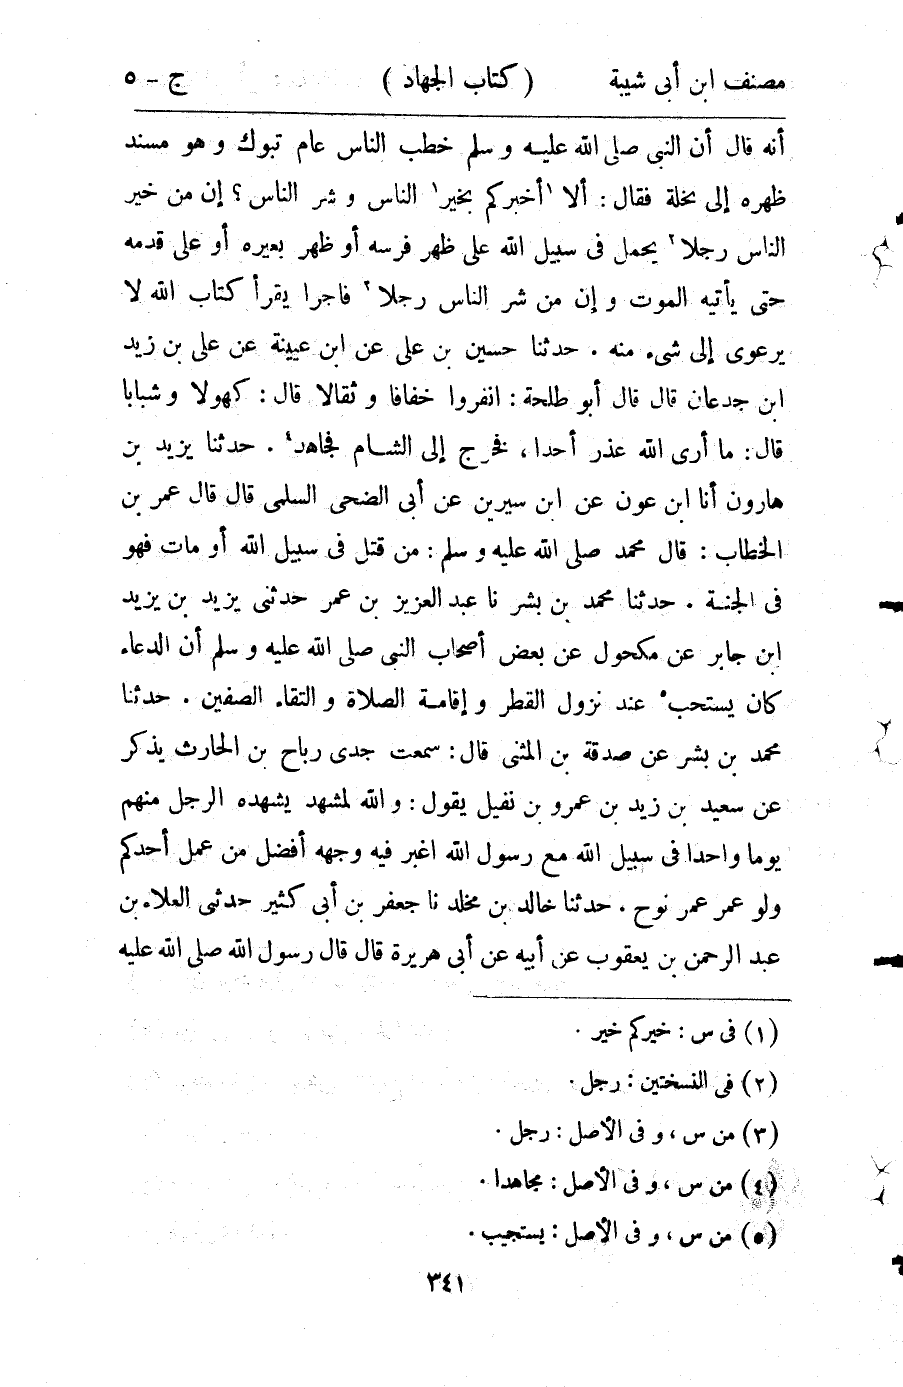 مصنف ابن أبى شيبة ( كتاب الجهاد ) ج - ٥
أنه قال أن النبى صلى الله عليه و سلم خطب الناس عام تبوك و هو مسند
ظهره إلى نخلة فقال : ألا ١أخبركم بخير١ الناس و شر الناس ؟ إن من خير
الناس رجلا٢ يحمل فى سبيل الله على ظهر فرسه أو ظهر بعيره أو على قدمه
حتى يأتيه الموت و إن من شر الناس رجلا٣ فاجرا يقرأ كتاب الله لا
يرعوى إلى شىء منه . حدثنا حسين بن على عن ابن عيينة عن على بن زيد
ابن جدعان قال قال أبو طلحة : انفروا خفافا و ثقالا قال : كهولا و شبابا
قال : ما أرى الله عذر أحدا ، فخرج إلى الشام فجاهد٤ . حدثنا يزيد بن
هارون أنا ابن عون عن ابن سيرين عن أبى الضحى السلمى قال قال عمر بن
الخطاب : قال محمد صلى الله عليه و سلم : من قتل فى سبيل الله أو مات فهو
فى الجنة . حدثنا محمد بن بشر نا عبد العزيز بن عمر حدثنى يزيد بن يزيد
ابن جابر عن مكحول عن بعض أصحاب النبى صلى الله عليه و سلم أن الدعاء
كان يستحب٥ عند نزول القطر و إقامة الصلاة و التقاء الصفين . حدثنا
محمد بن بشر عن صدقة بن المثنى قال : سمعت جدى رباح بن الحارث يذكر
عن سعيد بن زيد بن عمرو بن نفيل يقول : و الله لمشهد يشهده الرجل منهم
يوما واحدا فى سبيل الله مع رسول الله اغبر فيه وجهه أفضل من عمل أحدكم
ولو عمر عمر نوح . حدثنا خالد بن مخلد نا جعفر بن أبى كثير حدثى العلاء بن
عبد الرحمن بن يعقوب عن أبيه عن أبى هريرة قال قال رسول الله صلى الله عليه
(١) فى س : خيركم خير .
(٢) فى النسختين : رجل .
(٣) من س ، و فى الأصل : رجل .
(٤) من س ، و فى الأصل : مجاهدا .
(٥) من س ، و فى الأصل : يستجيب .
٣٤١